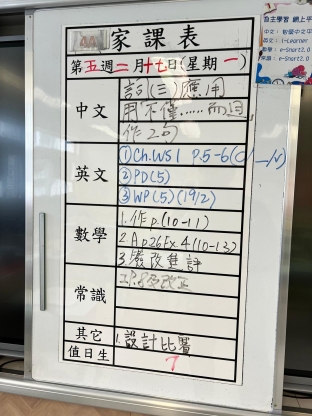 家課表
第五週二月十七日(星期一)
中文
詞(三)應用
用不僅……而且
作2句
英文
①Ch.WS1 P.5-6
②PD(5)
③WP(5)(19/2)
數學
1.作p.(10-11)
2.Ap26Ex.4(10-13)
3.
改進評
常識
改正
其它
1.設計比賽
值日生
7
自主學習 網上平
中文:智愛中文平
英文:i-Learner
數學:e-Smart2.0
常識:e-Smart2.0